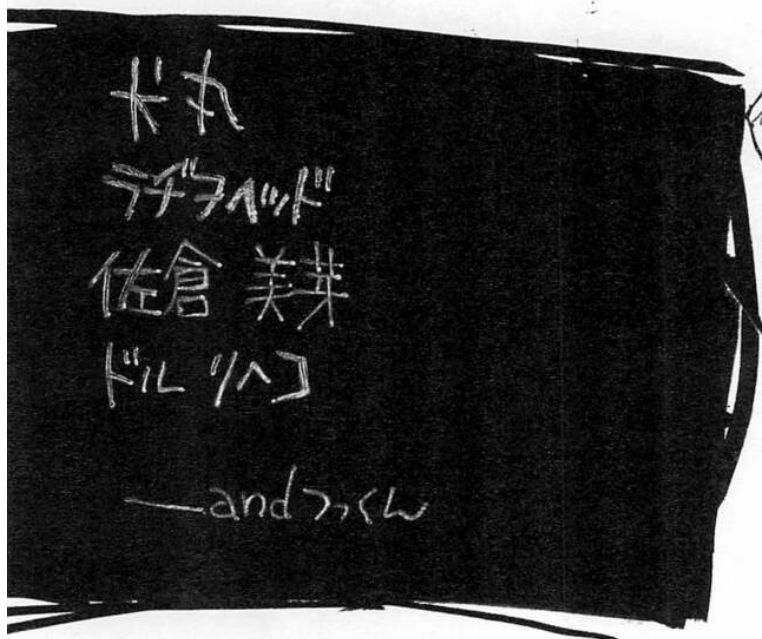 犬丸
ラヂヲヘッド
佐倉 美芽
ドル ツヘコ
—andつっくん